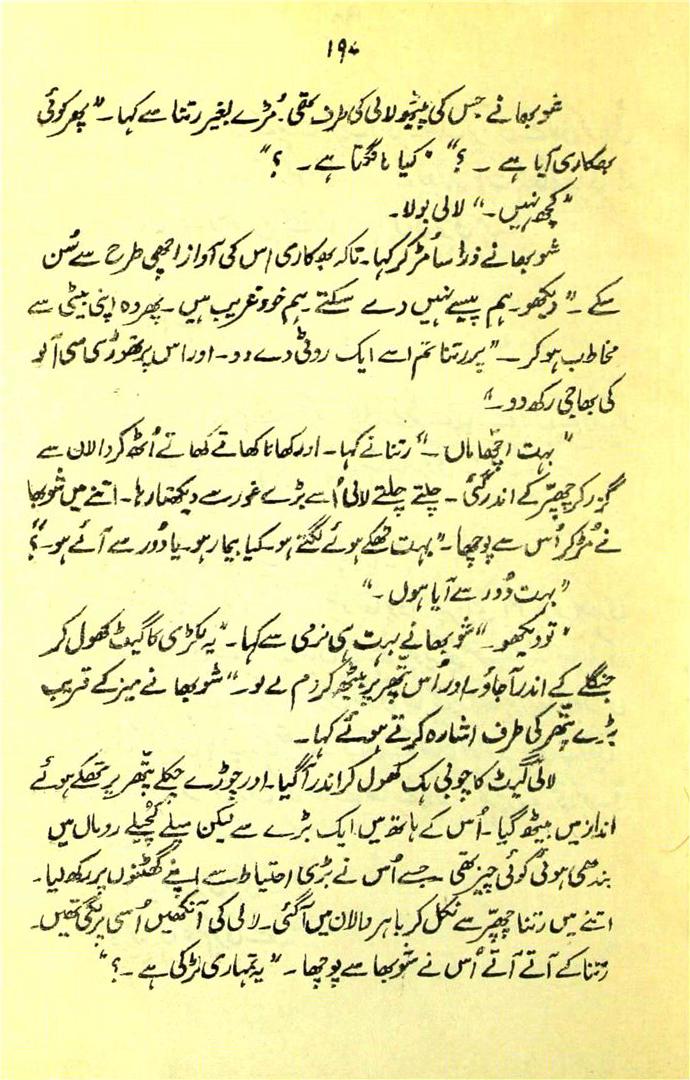 ۱۹۰
شوبھا نے جس کی پیٹھ لالی کی طرف تھی۔ مُڑے بغیر رتنا سے کہا۔ "پھر کوئی
بھکاری آیا ہے ۔ ؟" "کیا مانگتا ہے ۔ ؟"
"کچھ نہیں۔" لالی بولا۔
شوبھا نے ذرا سا مُڑ کر کہا۔ تاکہ بھکاری اس کی آواز اچھی طرح سے سُن
سکے ۔ "دیکھو۔ ہم پیسے نہیں دے سکتے۔ ہم خود غریب ہیں۔ پھر وہ اپنی بیٹی سے
مخاطب ہو کر ۔ "پر رتنا تم اسے ایک روٹی دے دو۔ اور اس پر تھوڑی سی آلو
کی بھاجی رکھ دو۔"
"بہت اچھا ماں ۔" رتنا نے کہا۔ اور کھانا کھاتے کھاتے اُٹھ کر دالان سے
گزر کر چھپّر کے اندر گئی ۔ چلتے چلتے لالی اُسے بڑے غور سے دیکھتا رہا۔ اتنے میں شوبھا
نے مُڑ کر اُس سے پوچھا۔ "بہت تھکے ہوئے لگتے ہو۔ کیا بیمار ہو۔ یا دُور سے آئے ہو۔؟"
"بہت دُور سے آیا ہوں ۔"
"تو دیکھو۔" شوبھا نے بہت ہی نرمی سے کہا۔ "یہ لکڑی کا گیٹ کھول کر
جنگلے کے اندر آ جاؤ۔ اور اُس پتّھر پر بیٹھ کر دم لے لو۔" شوبھا نے میز کے قریب
بڑے پتّھر کی طرف اشارہ کرتے ہوئے کہا۔
لالی گیٹ کا چوبی ہُک کھول کر اندر آ گیا۔ اور چوڑے چکلے پتّھر پر تھکے ہوئے
انداز میں بیٹھ گیا۔ اُس کے ہاتھ میں ایک بڑے سے لیکن میلے کُچیلے رومال میں
بندھی ہوئی کوئی چیز تھی ۔ جسے اُس نے بڑی احتیاط سے اپنے گھٹنوں پر رکھ لیا۔
اتنے میں رتنا چھپّر سے نکل کر باہر دالان میں آ گئی۔ لالی کی آنکھیں اُسی پر لگی تھیں۔
رتنا کے آتے آتے اُس نے شوبھا سے پوچھا۔ "یہ تمہاری لڑکی ہے ۔ ؟"